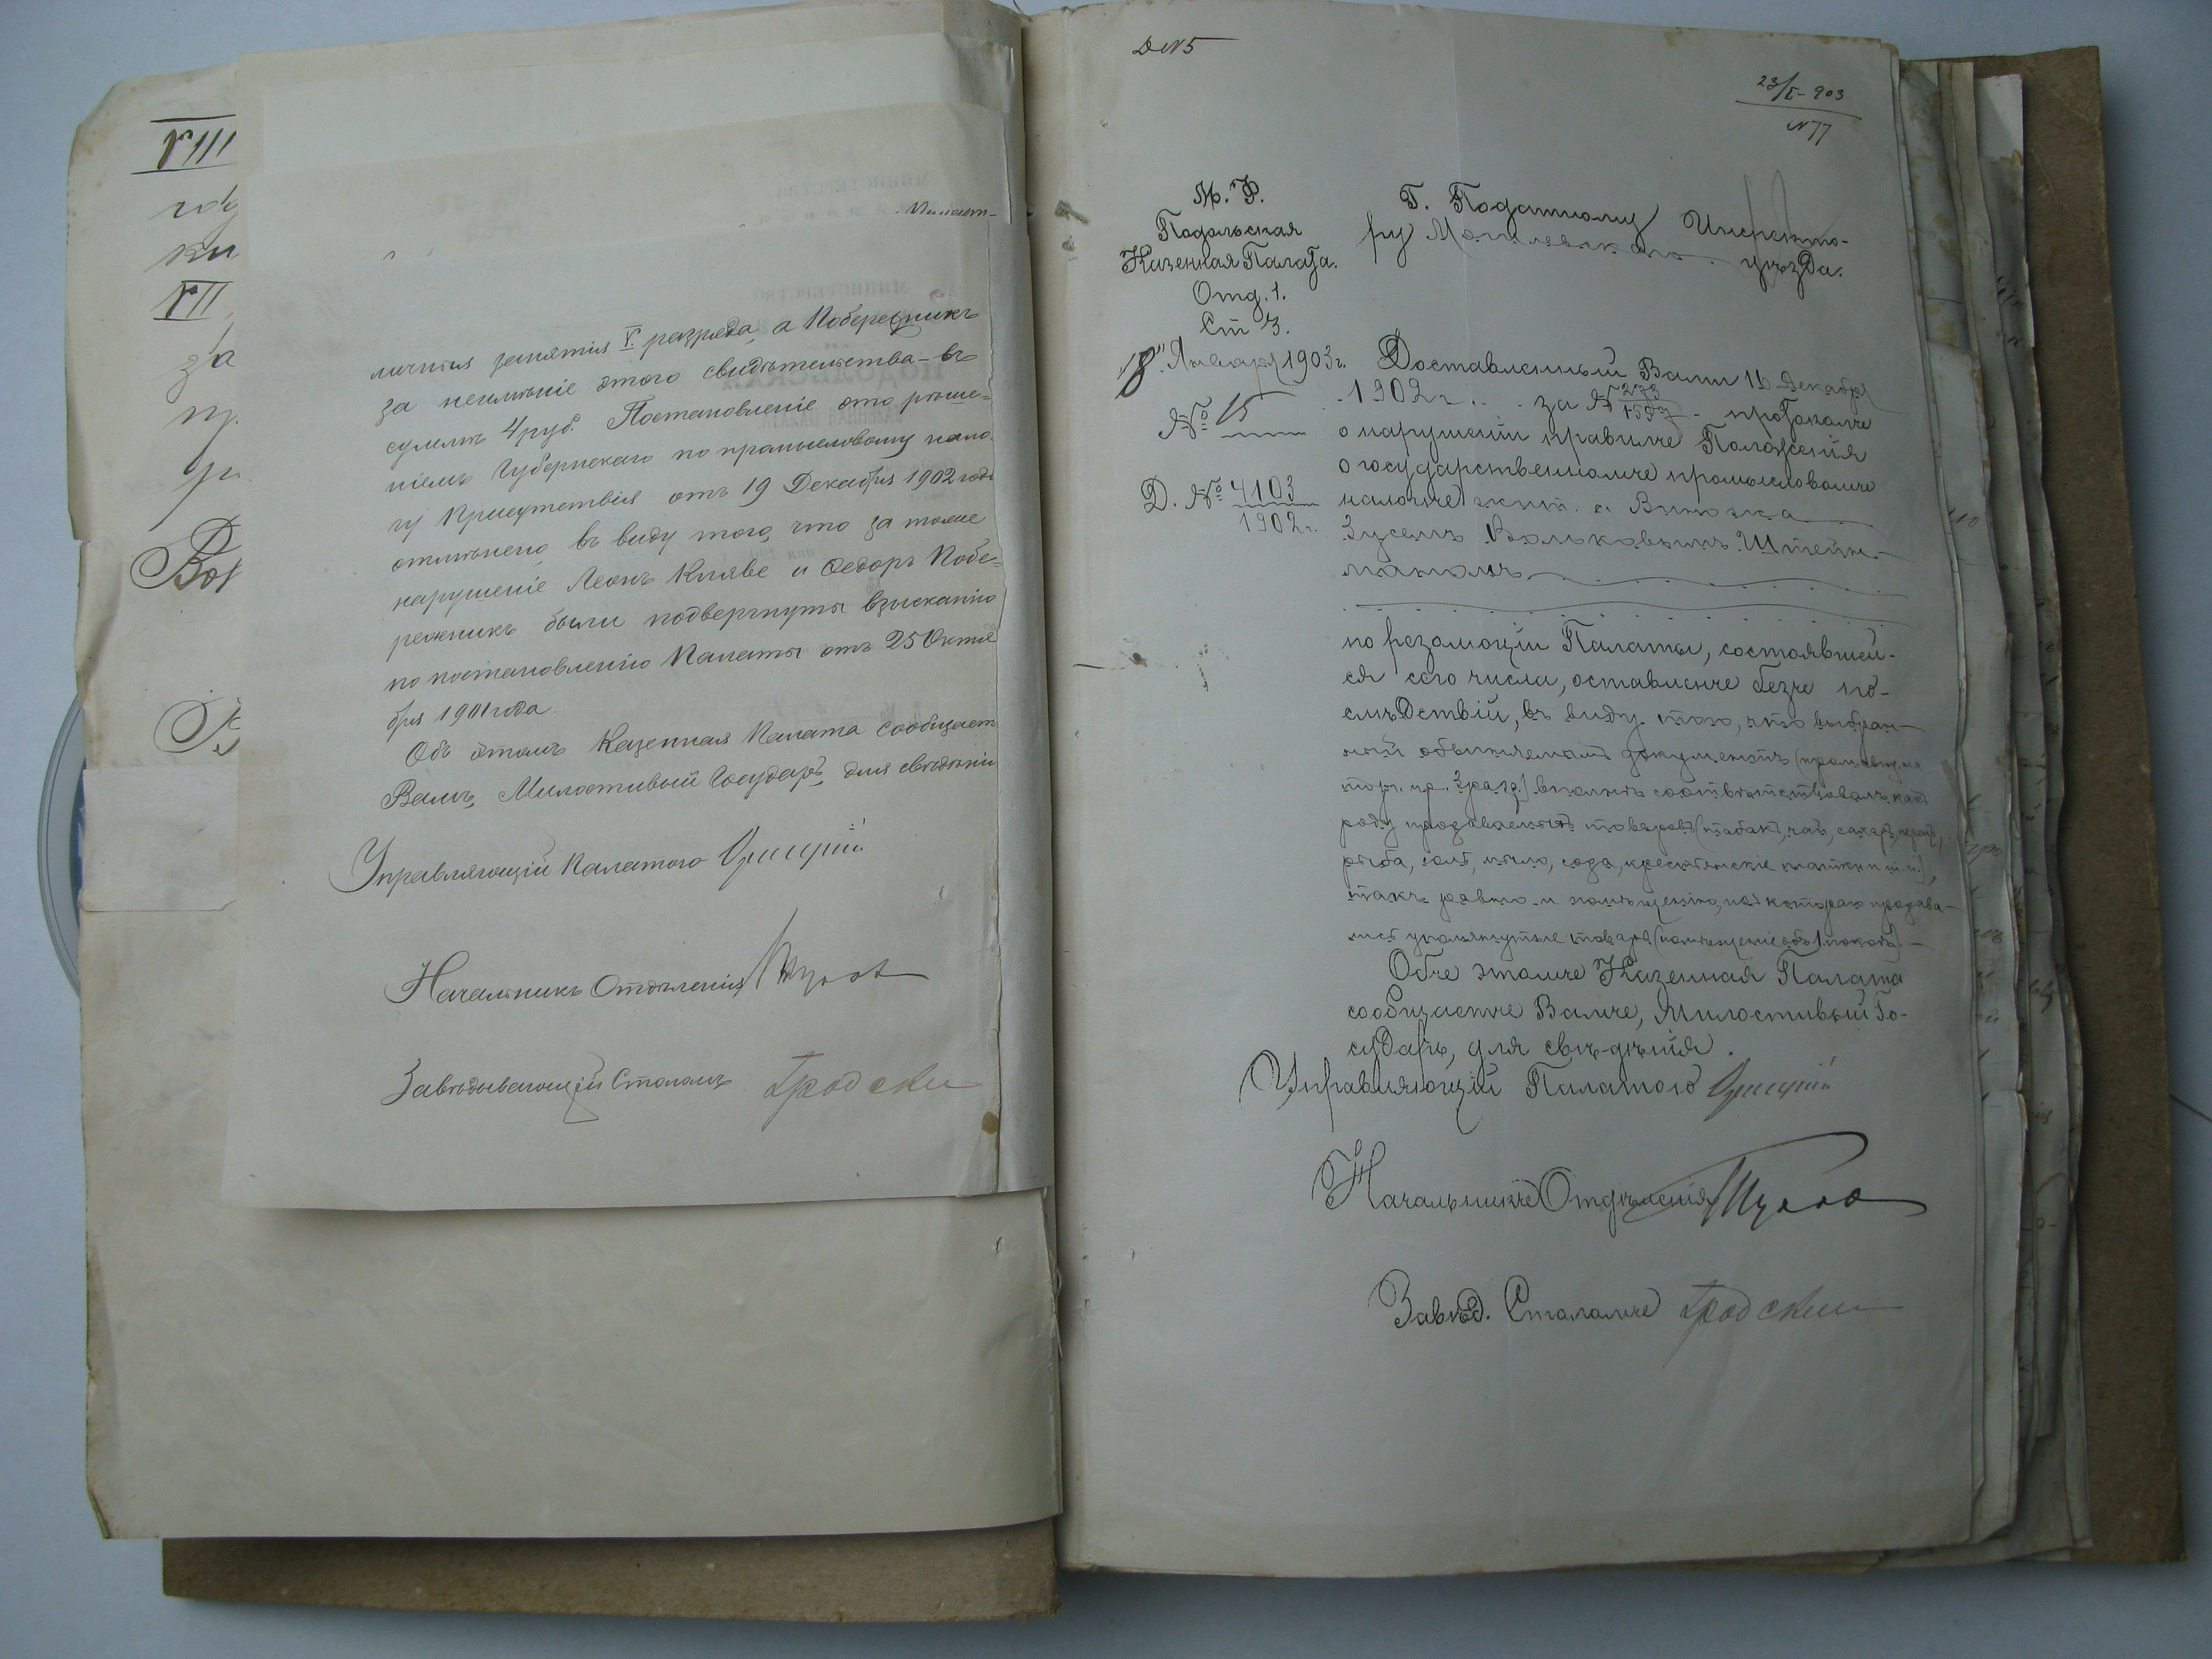 VIII
год
ки
VII
за
пр.
Вол
личныя занятія V разряда, а Побережникъ
за неимѣніе этого свидѣтельства – въ
суммѣ 4 руб. Постановленіе это рѣше-
ніемъ Губернскаго по промысловому нало-
гу Присутствія отъ 19 Декабря 1902 года
отмѣнено, въ виду того, что за тоже
нарушеніе Леонъ Княве и Ѳедоръ Побе-
режникъ были подвергнуты взысканію
по постановленію Палаты отъ 25 Октя
бря 1901 года.
Объ этомъ Казенная Палата сообщаетъ
Вамъ, Милостивый Государь, для свѣдѣнія
Управляющій Палатою
Начальникъ Отдѣленія
Завѣдывающій Столомъ Гродскій
Д №5
23/I-903
№77
М. Ф.
Подольская
Казенная Палата.
Отд. 1.
Ст 3.
"18" Января 1903 г.
№ 15
Д. № 4103
1902 г.
Г. Податному Инспекто-
ру Могилевскаго уѣзда.
Доставленный Вами 16 Декабря
1902 г. за № 273/1557 протоколъ
о нарушеніи правилъ Положенія
о государственномъ промысловомъ
налогѣ жит. с. Виножа
Зусемъ Вольковымъ Штейн-
маномъ
по резолюціи Палаты, состоявшей-
ся сего числа, оставленъ безъ по-
слѣдствій, въ виду того, что выбран-
ный обвиняемымъ документъ (промысл. на
торг. пр. 3 разр.) вполнѣ соотвѣтствовалъ какъ
роду продаваемыхъ товаровъ (табакъ, чай, сахаръ, перецъ,
рыба, соль, мыло, сода, крестьянскіе платки и т. п.),
такъ равно и помѣщенію, изъ котораго продава-
лись упомянутые товары (помѣщеніе объ 1 покоѣ). –
Объ этомъ Казенная Палата
сообщаетъ Вамъ, Милостивый Го-
сударь, для свѣдѣнія.
Управляющій Палатою
Начальникъ Отдѣленія
Завѣд. Столомъ Гродскій